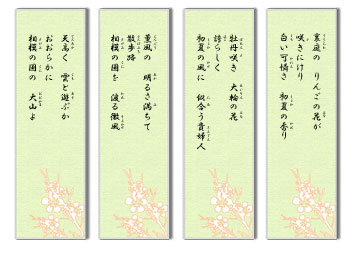 裏庭の りんごの花が
咲きにけり
白い可憐さ 初夏の香り
牡丹咲き 大輪の花
誇らしく
初夏の風に 似合う貴婦人
薫風の 明るさ満ちて
散歩路
相模の国を 渡る微風
天高く 雲と遊ぶか
おおらかに
相模の国の 大山よ